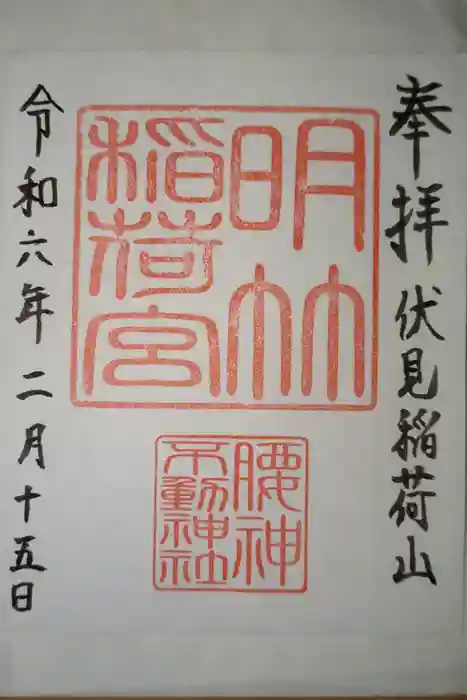 奉拝 伏見稲荷山
明竹
稲荷宮
腰神
不動神社
令和六年二月十五日